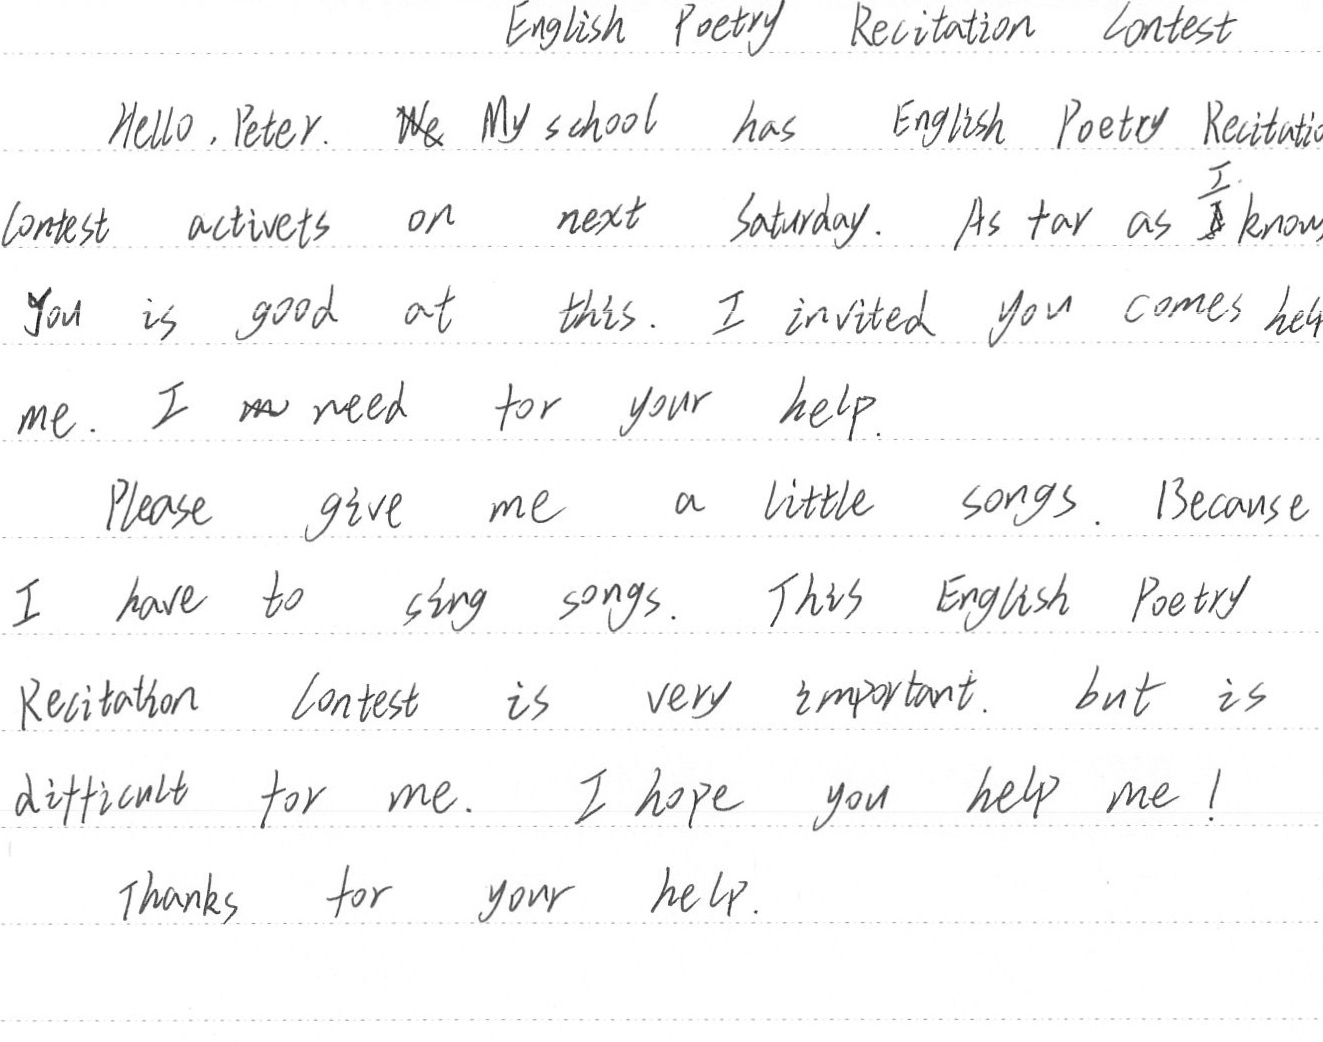 English Poetry Recitation Contest
Hello, Peter. My school has English Poetry Recitatio
Contest activets on next Saturday. As far as I know
you is good at this. I invited you comes help
me. I need for your help.
Please give me a little songs. Because
I have to sing songs. This English Poetry
Recitation Contest is very important. but is
difficult for me. I hope you help me!
Thanks for your help.